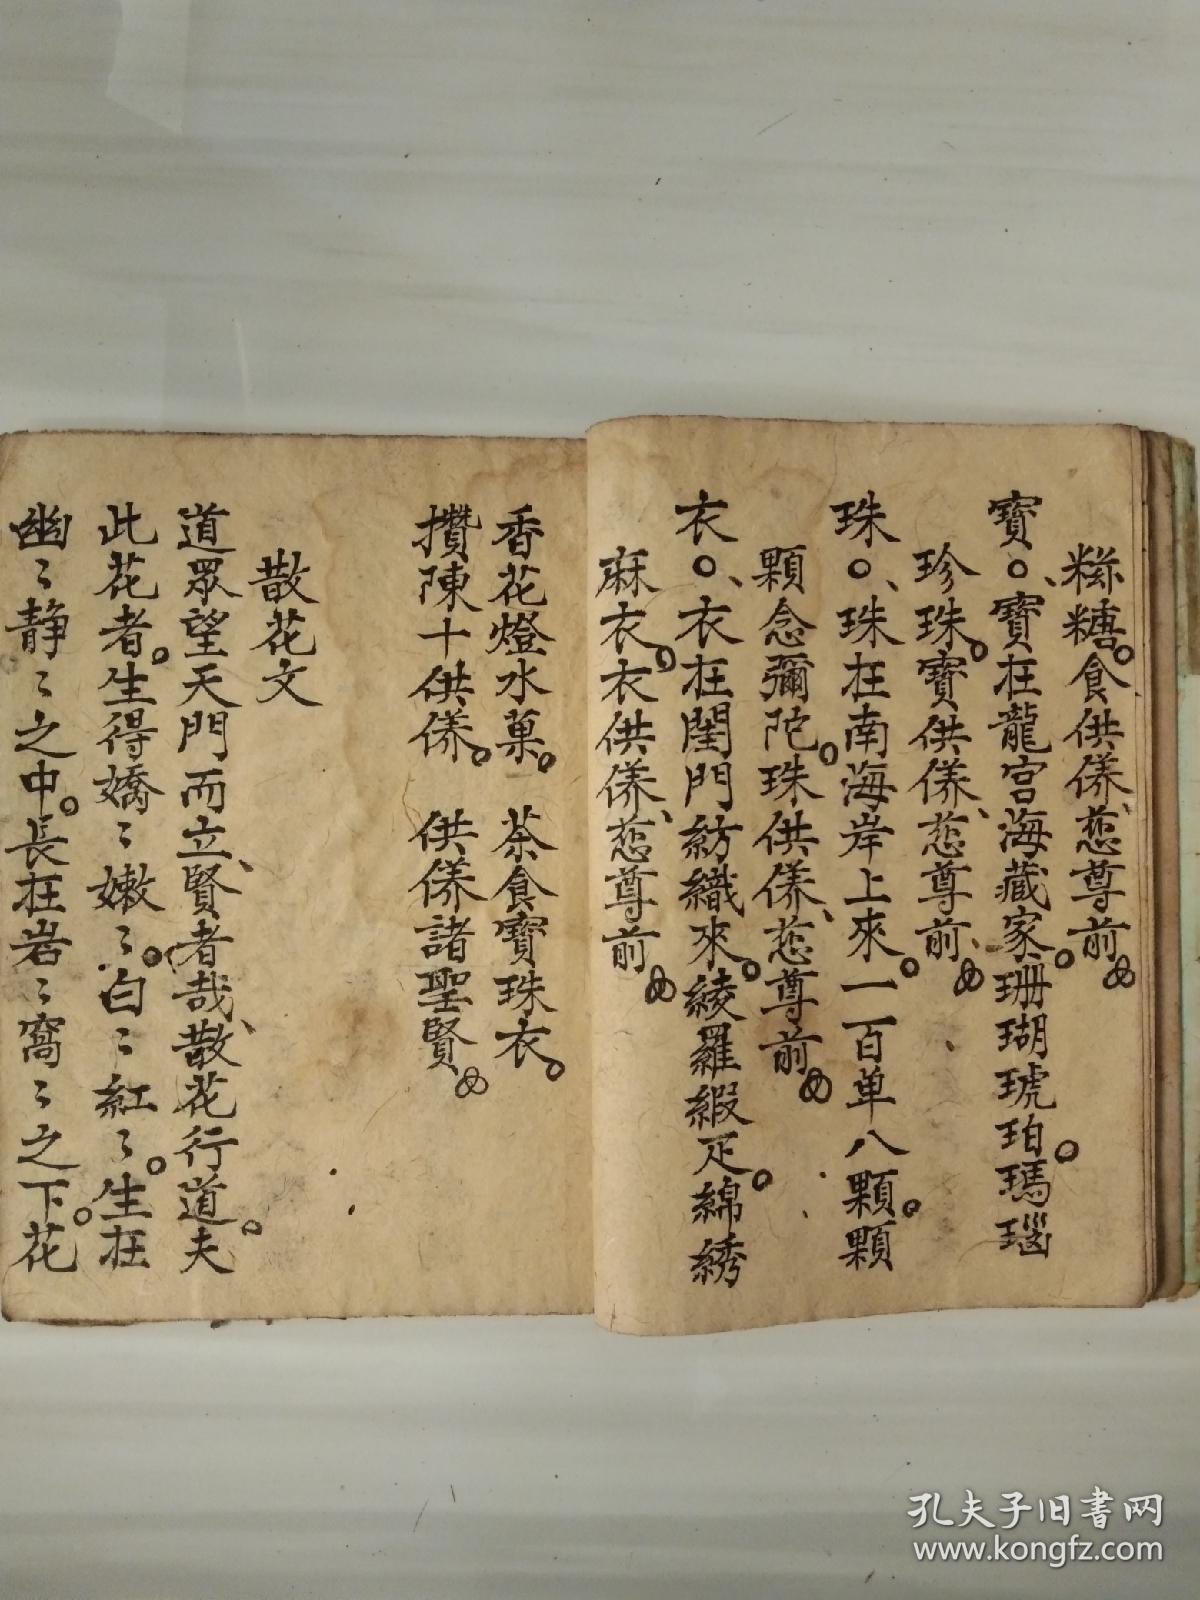 糍糖。食供養、慈尊前
寶〇、寶在龍宮海藏家。珊瑚琥珀。瑪瑙
珍珠。寶供養、慈尊前、
珠〇、珠在南海岸上來。一百单八顆。顆
顆念彌陀。珠供養、慈尊前
衣〇、衣在閨門紡織來。綾羅緞疋。綿綉
麻衣。衣供養、慈尊前
香花燈水菓。茶食寶珠衣。
攢陳十供養。供養諸聖賢
散花文
道眾望天門而立、賢者哉、散花行道夫。
此花者。生得嬌〻嫩〻。白〻紅〻。生在
幽〻静〻之中。長在岩〻窩〻之下。花
孔夫子旧书网
www.kongfz.com